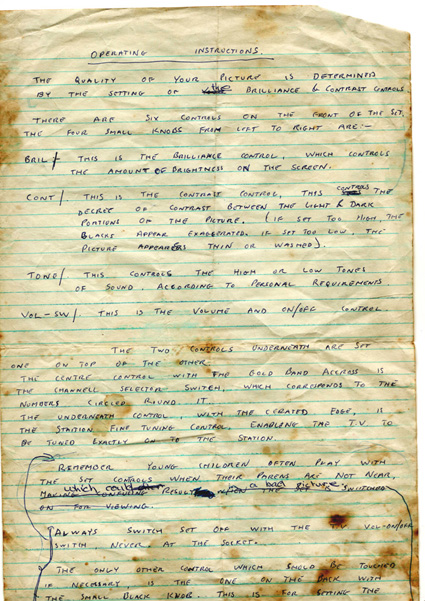 OPERATING INSTRUCTIONS.
THE QUALITY OF YOUR PICTURE IS DETERMINED
BY THE SETTING OF the BRILLIANCE & CONTRAST CONTROLS.
THERE ARE SIX CONTROLS ON THE FRONT OF THE SET,
THE FOUR SMALL KNOBS FROM LEFT TO RIGHT ARE:-
BRIL/ THIS IS THE BRILLIANCE CONTROL, WHICH CONTROLS
THE AMOUNT OF BRIGHTNESS ON THE SCREEN.
CONT/ THIS IS THE CONTRAST CONTROL, THIS CONTROLS THE
DEGREE OF CONTRAST BETWEEN THE LIGHT & DARK
PORTIONS OF THE PICTURE. (IF SET TOO HIGH, THE
BLACKS APPEAR EXAGGERATED. IF SET TOO LOW, THE
PICTURE APPEARS THIN OR WASHED).
TONE/ THIS CONTROLS THE HIGH OR LOW TONES
OF SOUND. ACCORDING TO PERSONAL REQUIREMENTS
VOL-SW/ THIS IS THE VOLUME AND ON/OFF CONTROL.
THE TWO CONTROLS UNDERNEATH ARE SET
ONE ON TOP OF THE OTHER.
THE CENTRE CONTROL WITH THE GOLD BAND ACCROSS IS
THE CHANNELL SELECTOR SWITCH, WHICH CORRISPENDS TO THE
NUMBERS CIRCLED ROUND IT.
THE UNDERNEATH CONTROL, WITH THE CERATED EDGE, IS
THE STATION FINE TUNING CONTROL, ENABLENG THE T.V. TO
BE TUNED EXACTLY ON TO THE STATION.
REMEMBER YOUNG CHILDREN OFTEN PLAY WITH
THE SET CONTROLS WHEN THEIR PARENS ARE NOT NEAR,
which could a bad picture.
MAKING RESULT WHEN THE SET IS SWITCHED
ON FOR VIEWING.
ALWAYS SWITCH SET OFF WITH THE VOL-ON/OFF
SWITCH, NEVER, AT THE SOCKET.
THE ONLY OTHER CONTROL WHICH SHOULD BE TOUCHED
IF NECESSARY, IS THE ONE ON THE BACK WITH
THE SMALL BLACK KNOB. THIS IS FOR SETTING THE